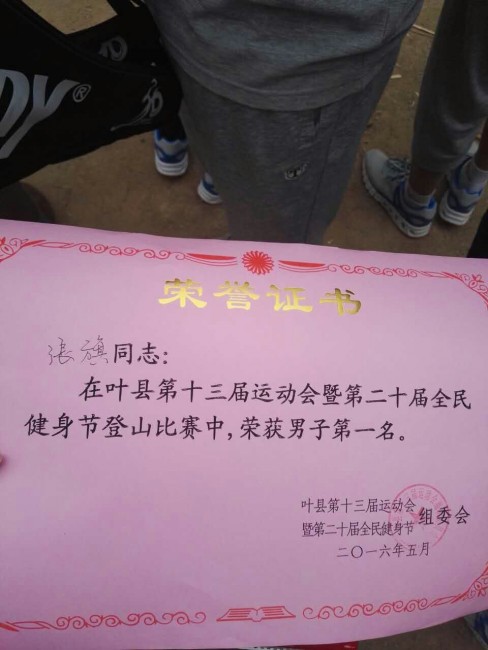 DY®
荣誉证书
张旗同志:
在叶县第十三届运动会暨第二十届全民
健身节登山比赛中,荣获男子第一名。
叶县第十三届运动会
暨第二十届全民健身节 组委会
二〇一六年五月